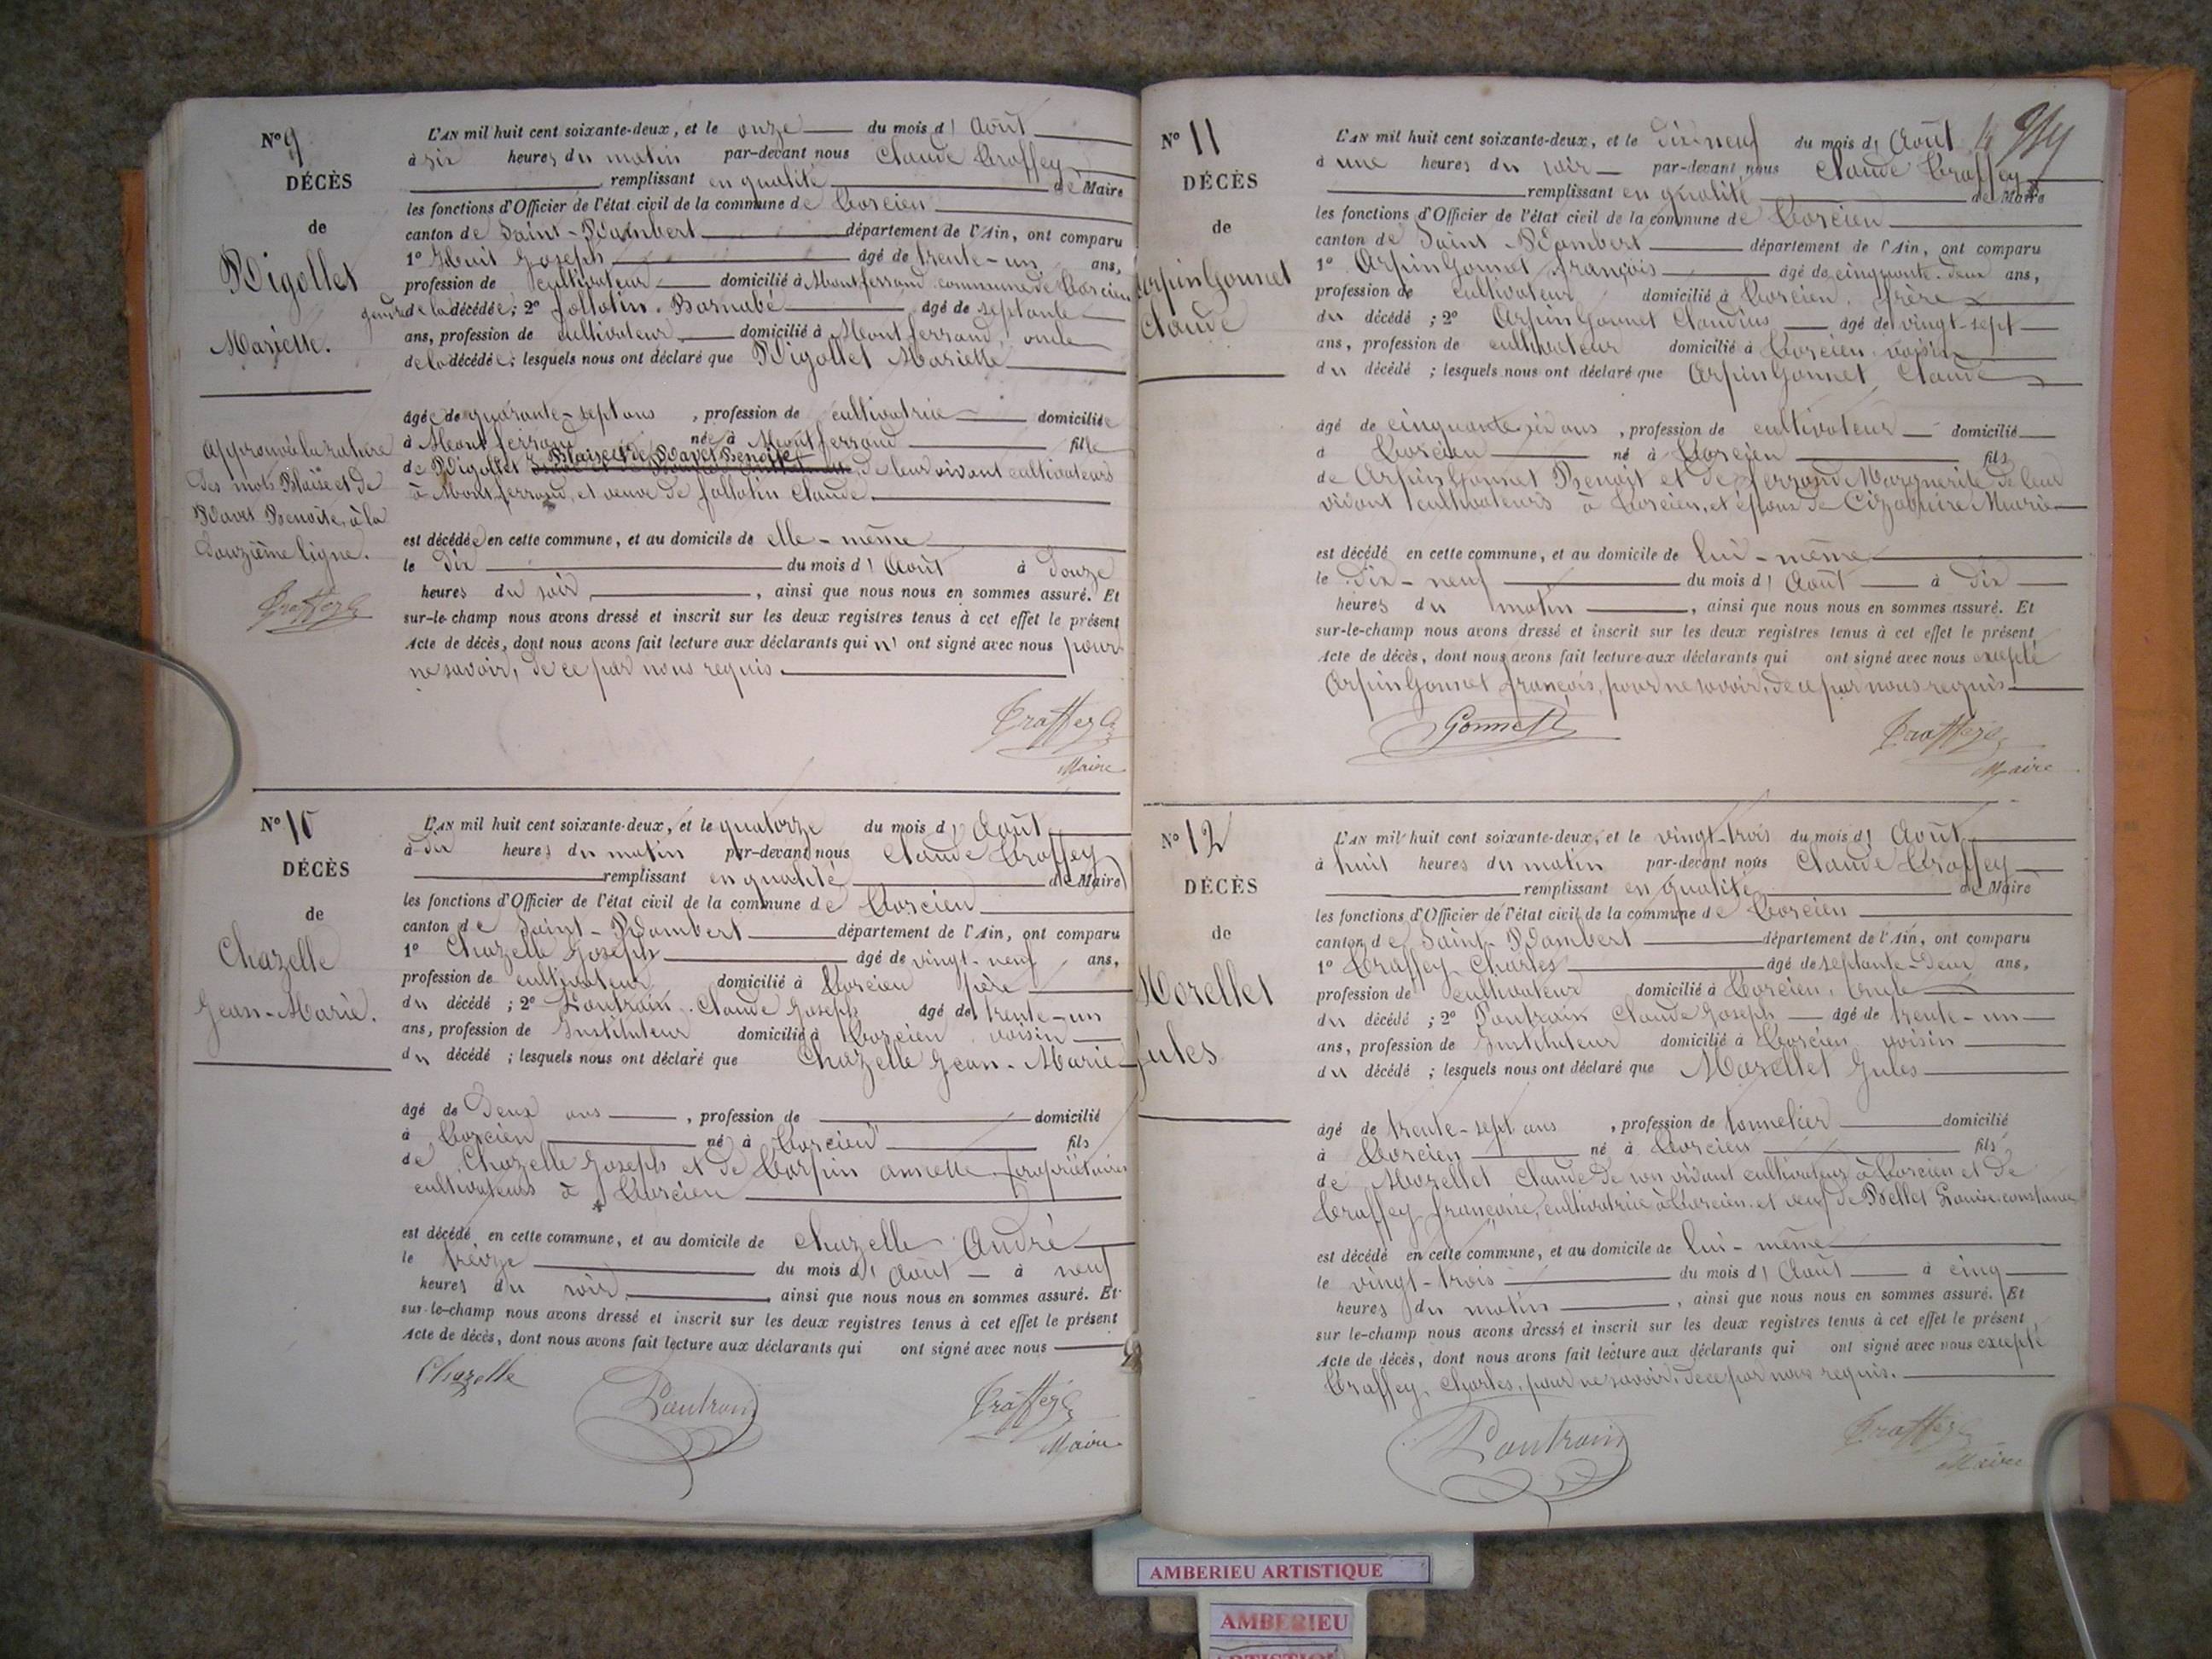 N° 9
DÉCÈS
de
Rigollet
Mariette.
approuvé la rature
des mots Blaise et de
Ravet Benoîte, à la
douzième ligne.
L'AN mil huit cent soixante-deux, et le onze du mois d' Août
à six heures du matin par-devant nous Claude Traffey
remplissant en qualité de Maire
les fonctions d'Officier de l'état civil de la commune de Torcieu
canton de Saint-Rambert département de l'Ain, ont comparu
1° Joseph âgé de trente-un ans,
profession de cultivateur domicilié à Montferrand commune de Torcieu
gendre de la décédée; 2° Jollotin Barnabé âgé de septante
ans, profession de cultivateur domicilié à Montferrand, oncle
de la décédée; lesquels nous ont déclaré que Rigollet Mariette
âgée de quarante-sept ans, profession de cultivatrice domiciliée
à Montferrand née à Montferrand fille
de Rigollet Blaise et de Ravet Benoîte de leur vivant cultivateurs
à Montferrand, et veuve de Jollotin Claude.
est décédée en cette commune, et au domicile de elle-même
le dix du mois d' Août à douze
heures du soir, ainsi que nous nous en sommes assuré. Et
sur-le-champ nous avons dressé et inscrit sur les deux registres tenus à cet effet le présent
Acte de décès, dont nous avons fait lecture aux déclarants qui n' ont signé avec nous pour
ne savoir, de ce par nous requis.
Traffey C.
Maire
N° 10
DÉCÈS
de
Chazelle
Jean-Marie.
L'AN mil huit cent soixante-deux, et le quatorze du mois d' Août
à dix heures du matin par-devant nous Claude Traffey
remplissant en qualité de Maire
les fonctions d'Officier de l'état civil de la commune de Torcieu
canton de Saint-Rambert département de l'Ain, ont comparu
1° Chazelle Joseph âgé de vingt-neuf ans,
profession de cultivateur domicilié à Torcieu père
du décédé; 2° Poutrain Claude Joseph âgé de trente-un
ans, profession de Instituteur domicilié à Torcieu, voisin
du décédé; lesquels nous ont déclaré que Chazelle Jean-Marie
âgé de deux ans, profession de domicilié
à Torcieu né à Torcieu fils
de Chazelle Joseph et de Tarpin propriétaires
cultivateurs à Torcieu
est décédé en cette commune, et au domicile de Chazelle André
le treize du mois d' Août à neuf
heures du soir, ainsi que nous nous en sommes assuré. Et
sur-le-champ nous avons dressé et inscrit sur les deux registres tenus à cet effet le présent
Acte de décès, dont nous avons fait lecture aux déclarants qui ont signé avec nous
Chazelle
Poutrain
Traffey C.
Maire
N° 11
DÉCÈS
de
Arpin Gonnet
Claude
L'AN mil huit cent soixante-deux, et le dix-neuf du mois d' Août
à une heures du soir par-devant nous Claude Traffey
remplissant en qualité de Maire
les fonctions d'Officier de l'état civil de la commune de Torcieu
canton de Saint-Rambert département de l'Ain, ont comparu
1° Arpin Gonnet François âgé de cinquante-deux ans,
profession de cultivateur domicilié à Torcieu, frère
du décédé; 2° Arpin Gonnet Claudius âgé de vingt-sept
ans, profession de cultivateur domicilié à Torcieu voisin
du décédé; lesquels nous ont déclaré que Arpin Gonnet Claude
âgé de cinquante-six ans, profession de cultivateur domicilié
à Torcieu né à Torcieu fils
de Arpin Gonnet Benoît et de Ferrand Marguerite de leur
vivant cultivateurs à Torcieu, et époux de Marie
est décédé en cette commune, et au domicile de lui-même
le dix-neuf du mois d' Août à dix
heures du matin, ainsi que nous nous en sommes assuré. Et
sur-le-champ nous avons dressé et inscrit sur les deux registres tenus à cet effet le présent
Acte de décès, dont nous avons fait lecture aux déclarants qui ont signé avec nous excepté
Arpin Gonnet François, pour ne savoir, de ce par nous requis.
Gonnet
Traffey C.
Maire
N° 12
DÉCÈS
de
Morellet
Jules
L'AN mil huit cent soixante-deux, et le vingt-trois du mois d' Août
à huit heures du matin par-devant nous Claude Traffey
remplissant en qualité de Maire
les fonctions d'Officier de l'état civil de la commune de Torcieu
canton de Saint-Rambert département de l'Ain, ont comparu
1° Traffey Charles âgé de septante-deux ans,
profession de cultivateur domicilié à Torcieu, oncle
du décédé; 2° Poutrain Claude Joseph âgé de trente-un
ans, profession de Instituteur domicilié à Torcieu voisin
du décédé; lesquels nous ont déclaré que Morellet Jules
âgé de trente-sept ans, profession de tonnelier domicilié
à Torcieu né à Torcieu fils
de Morellet Claude de son vivant cultivateur à Torcieu et de
Traffey Françoise, cultivatrice à Torcieu et veuf de Bellet Louise constance
est décédé en cette commune, et au domicile de lui-même
le vingt-trois du mois d' Août à cinq
heures du matin, ainsi que nous nous en sommes assuré. Et
sur le-champ nous avons dressé et inscrit sur les deux registres tenus à cet effet le présent
Acte de décès, dont nous avons fait lecture aux déclarants qui ont signé avec nous excepté
Traffey, Charles, pour ne savoir, de ce par nous requis.
Poutrain
Traffey C.
Maire
AMBERIEU ARTISTIQUE
AMBERIEU
ARTISTIQUE